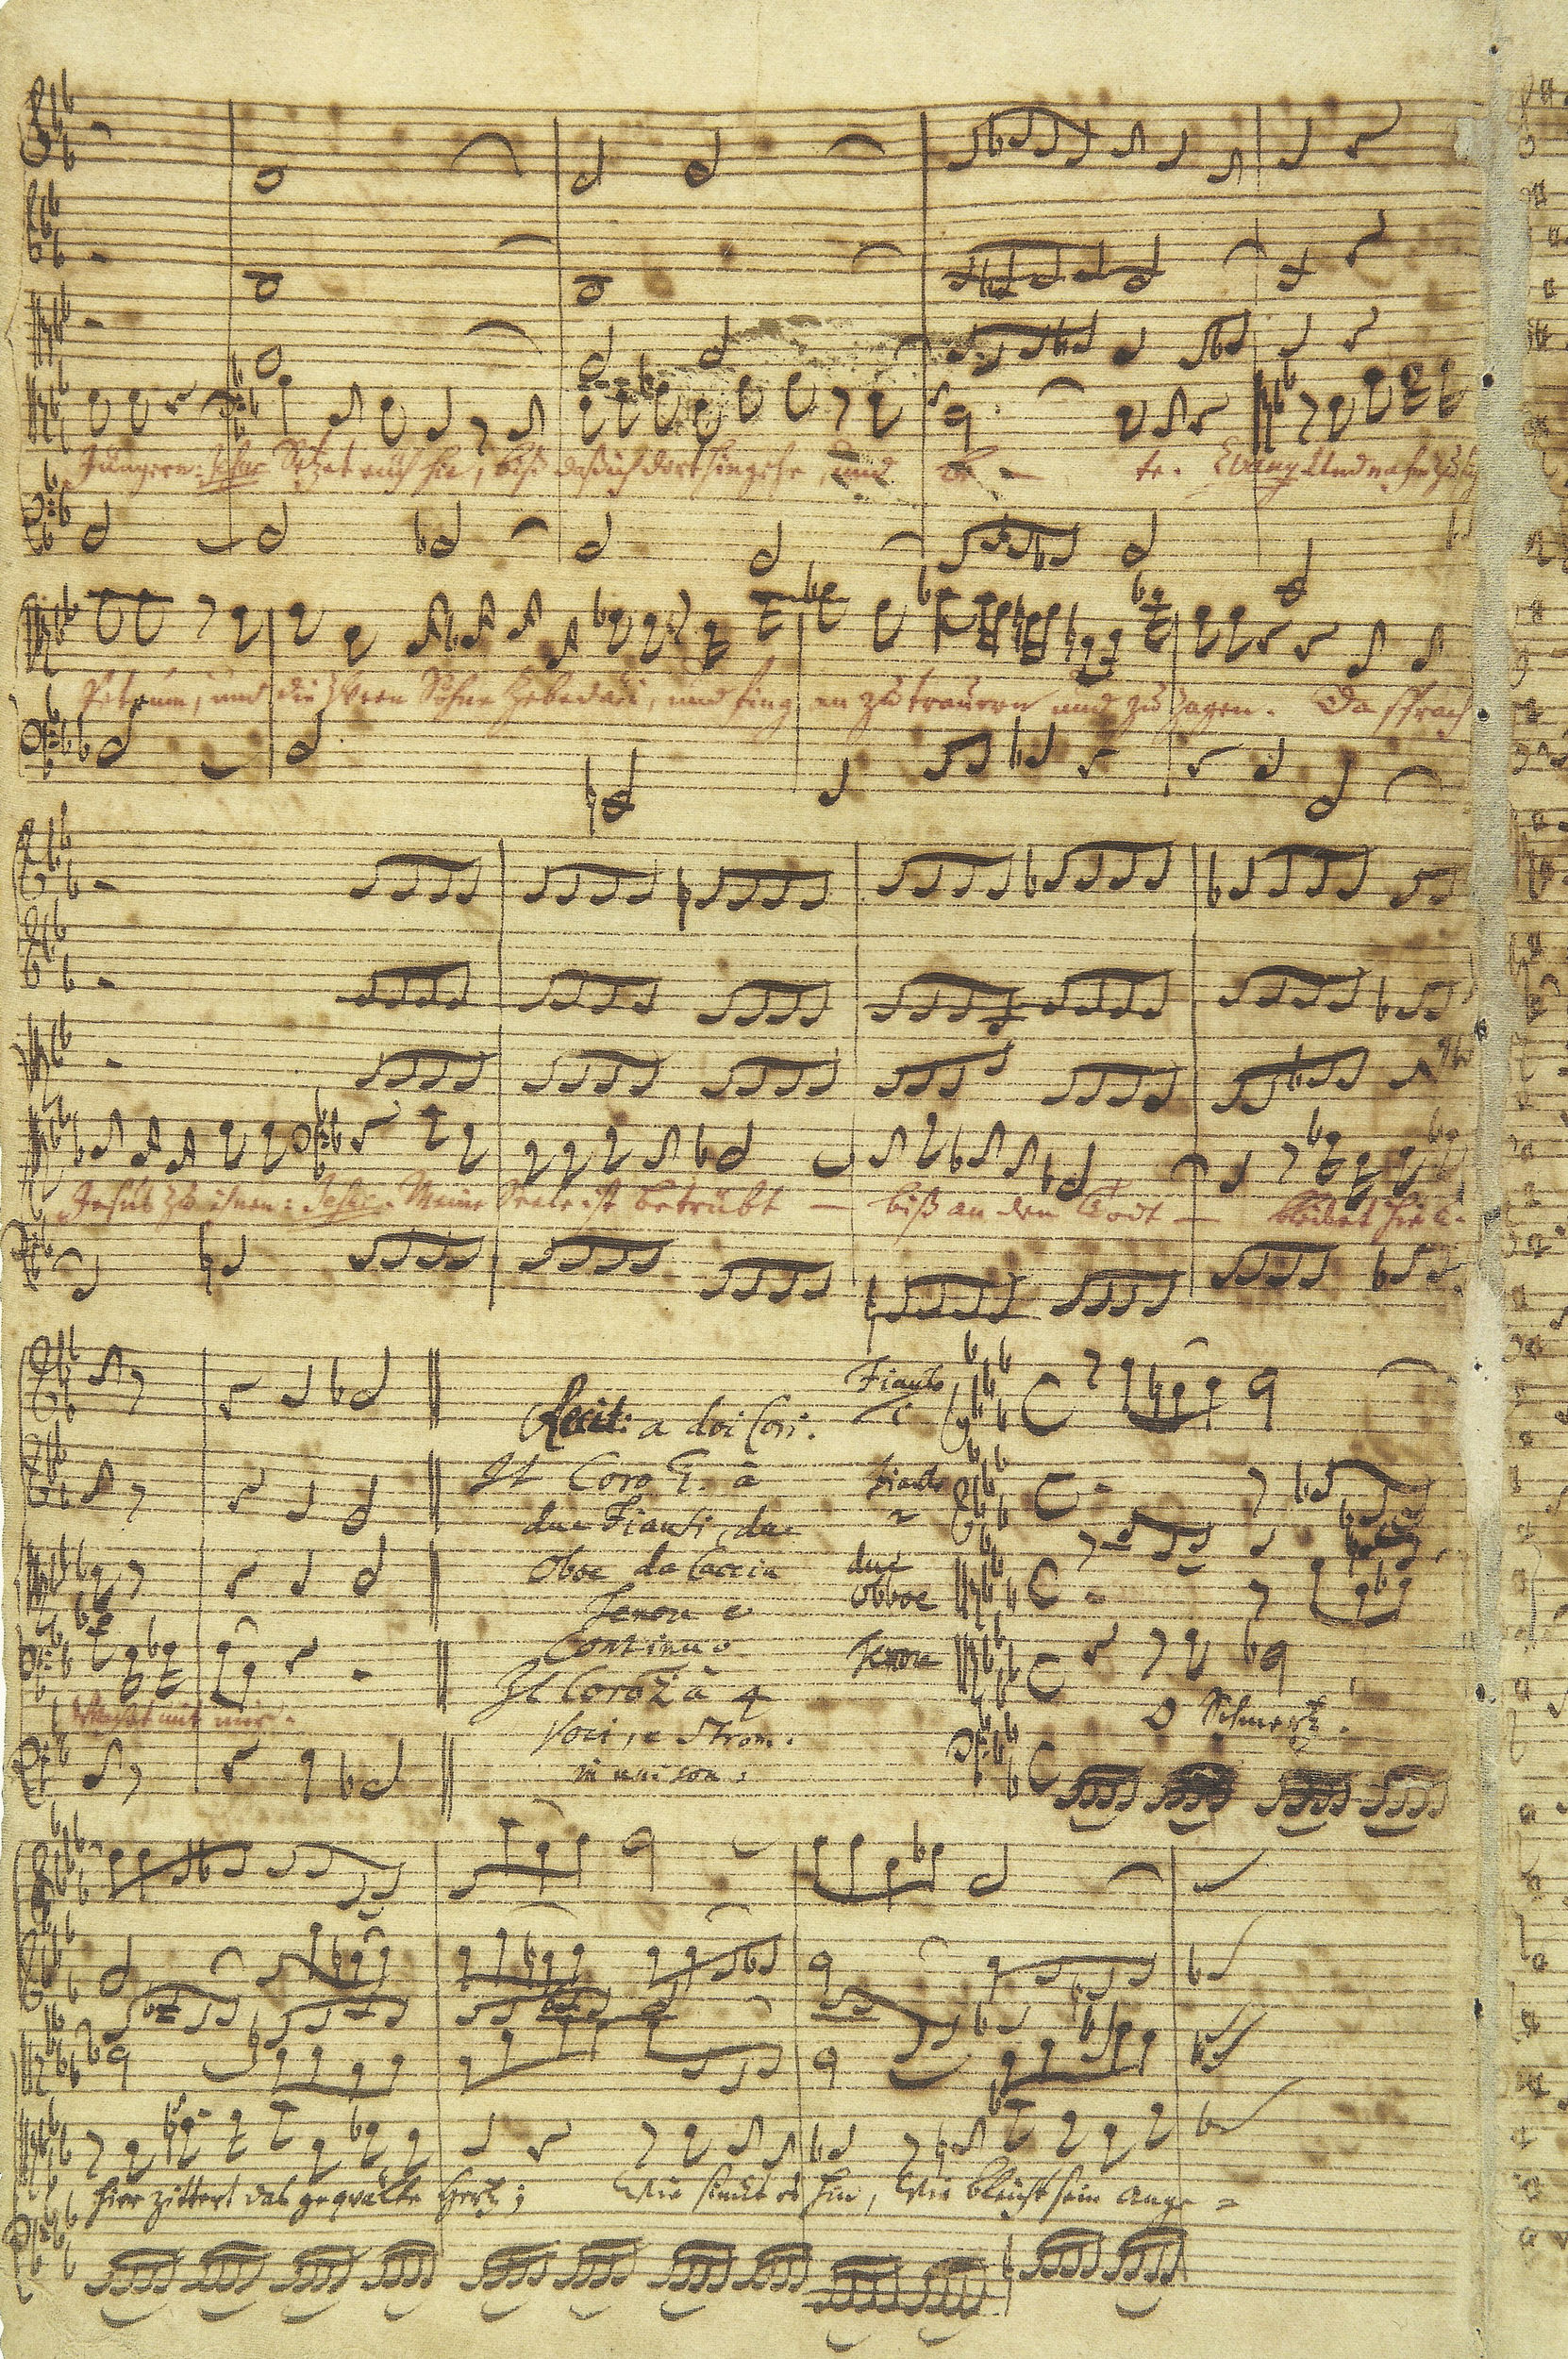 Jüngern: Jesus Setzet euch hie, biß daß ich dort hingehe, und be - te. Evang. Und nahm zu sich
Petrum, und die zween Söhne Zebedäi, und fing an zu trauren und zu zagen. Da sprach
Jesus zu ihnen: Jesus. Meine Seele ist betrübt — biß an den Todt — bleibet hie u.
Recit: a doi Cori.
Il Coro 1. à
due Fiauti, due
Oboe da Caccia
Tenore e
Continuo
Il Coro 2 à 4
Voci, e Strom.
in unison.
Fiauto
1
Fiauto
2
due
Obboe
Tenore
wachet mit mir.
O Schmertz!
hier zittert das gequälte Hertz; Wie sinckt es hin, Wie bleicht sein Ange =